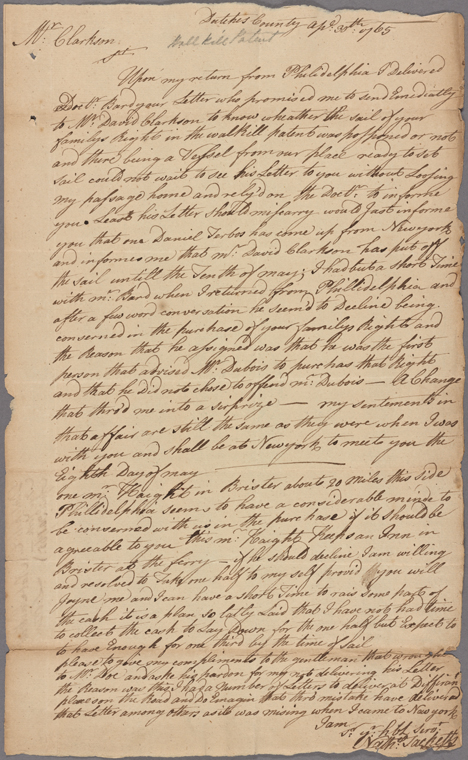 Dutches County Apl. 30th 1765
Mr. Clarkson
Wallkill Patent
Sr.
Upon my return from Philadelphia I Delivered
Doctr. Bard your Letter who promised me to send Emediatly
to Mr. David Clarkson to know wheather the sail of your
familys Right in the wallkill patent was posponed or not
and there being a Vessel from our place ready to set
sail could not wait to see his Letter to you without Loosing
my passage home and relyd on the Doctr. to informe
you Least his Letter should miscarry would Just informe
you that one Daniel Terbos has come up from New york
and informes me that mr. David Clarkson has put off
the sail untill the Tenth of may; I had but a short Time
with mr. Bard when I returned from Philladelphia and
after a few word conversation he seemd to Decline being
conserned in the purchase of your familys Rights and
the Reason that he assigned was that he was the first
person that advised Mr. Dubois to purchas that Right
and that he did not chose to offend mr. Dubois — A Change
that throd me into a surprize — my sentements in
that affair are still the same as they were when I was
with you and shall be at New york to meite you the
Eighth Day of may
one mr. Haight in Brister about 20 miles this side
Philldelphia seems to have a considerable minde to
be conserned with us in the purchase if it should be
agreeable to you this mr. Haught Keeps an Inn on
Brister at the ferry — if he should decline I am willing
and resolved to Take one half to my self provid you will
Joyne me and I can have a short Time to rais some part of
the cash it is a plan so latly Laid that I have not had time
to collect the cash to Lay Down for the one half but Expect to
to have Enough for one third by the time of sail
please to give my complements to the gentleman that wrought
to Mr. Doe and ask his pardon for my not delivering his Letter
the Reason was this I had a Number of Letters to deliver at Differant
places on the Road and do Emagin that thro mistake have deliverd
that Letter among others as it was mising when I came to New york
I am
Sr. yr. hble Servt.
Nathl. Sackett